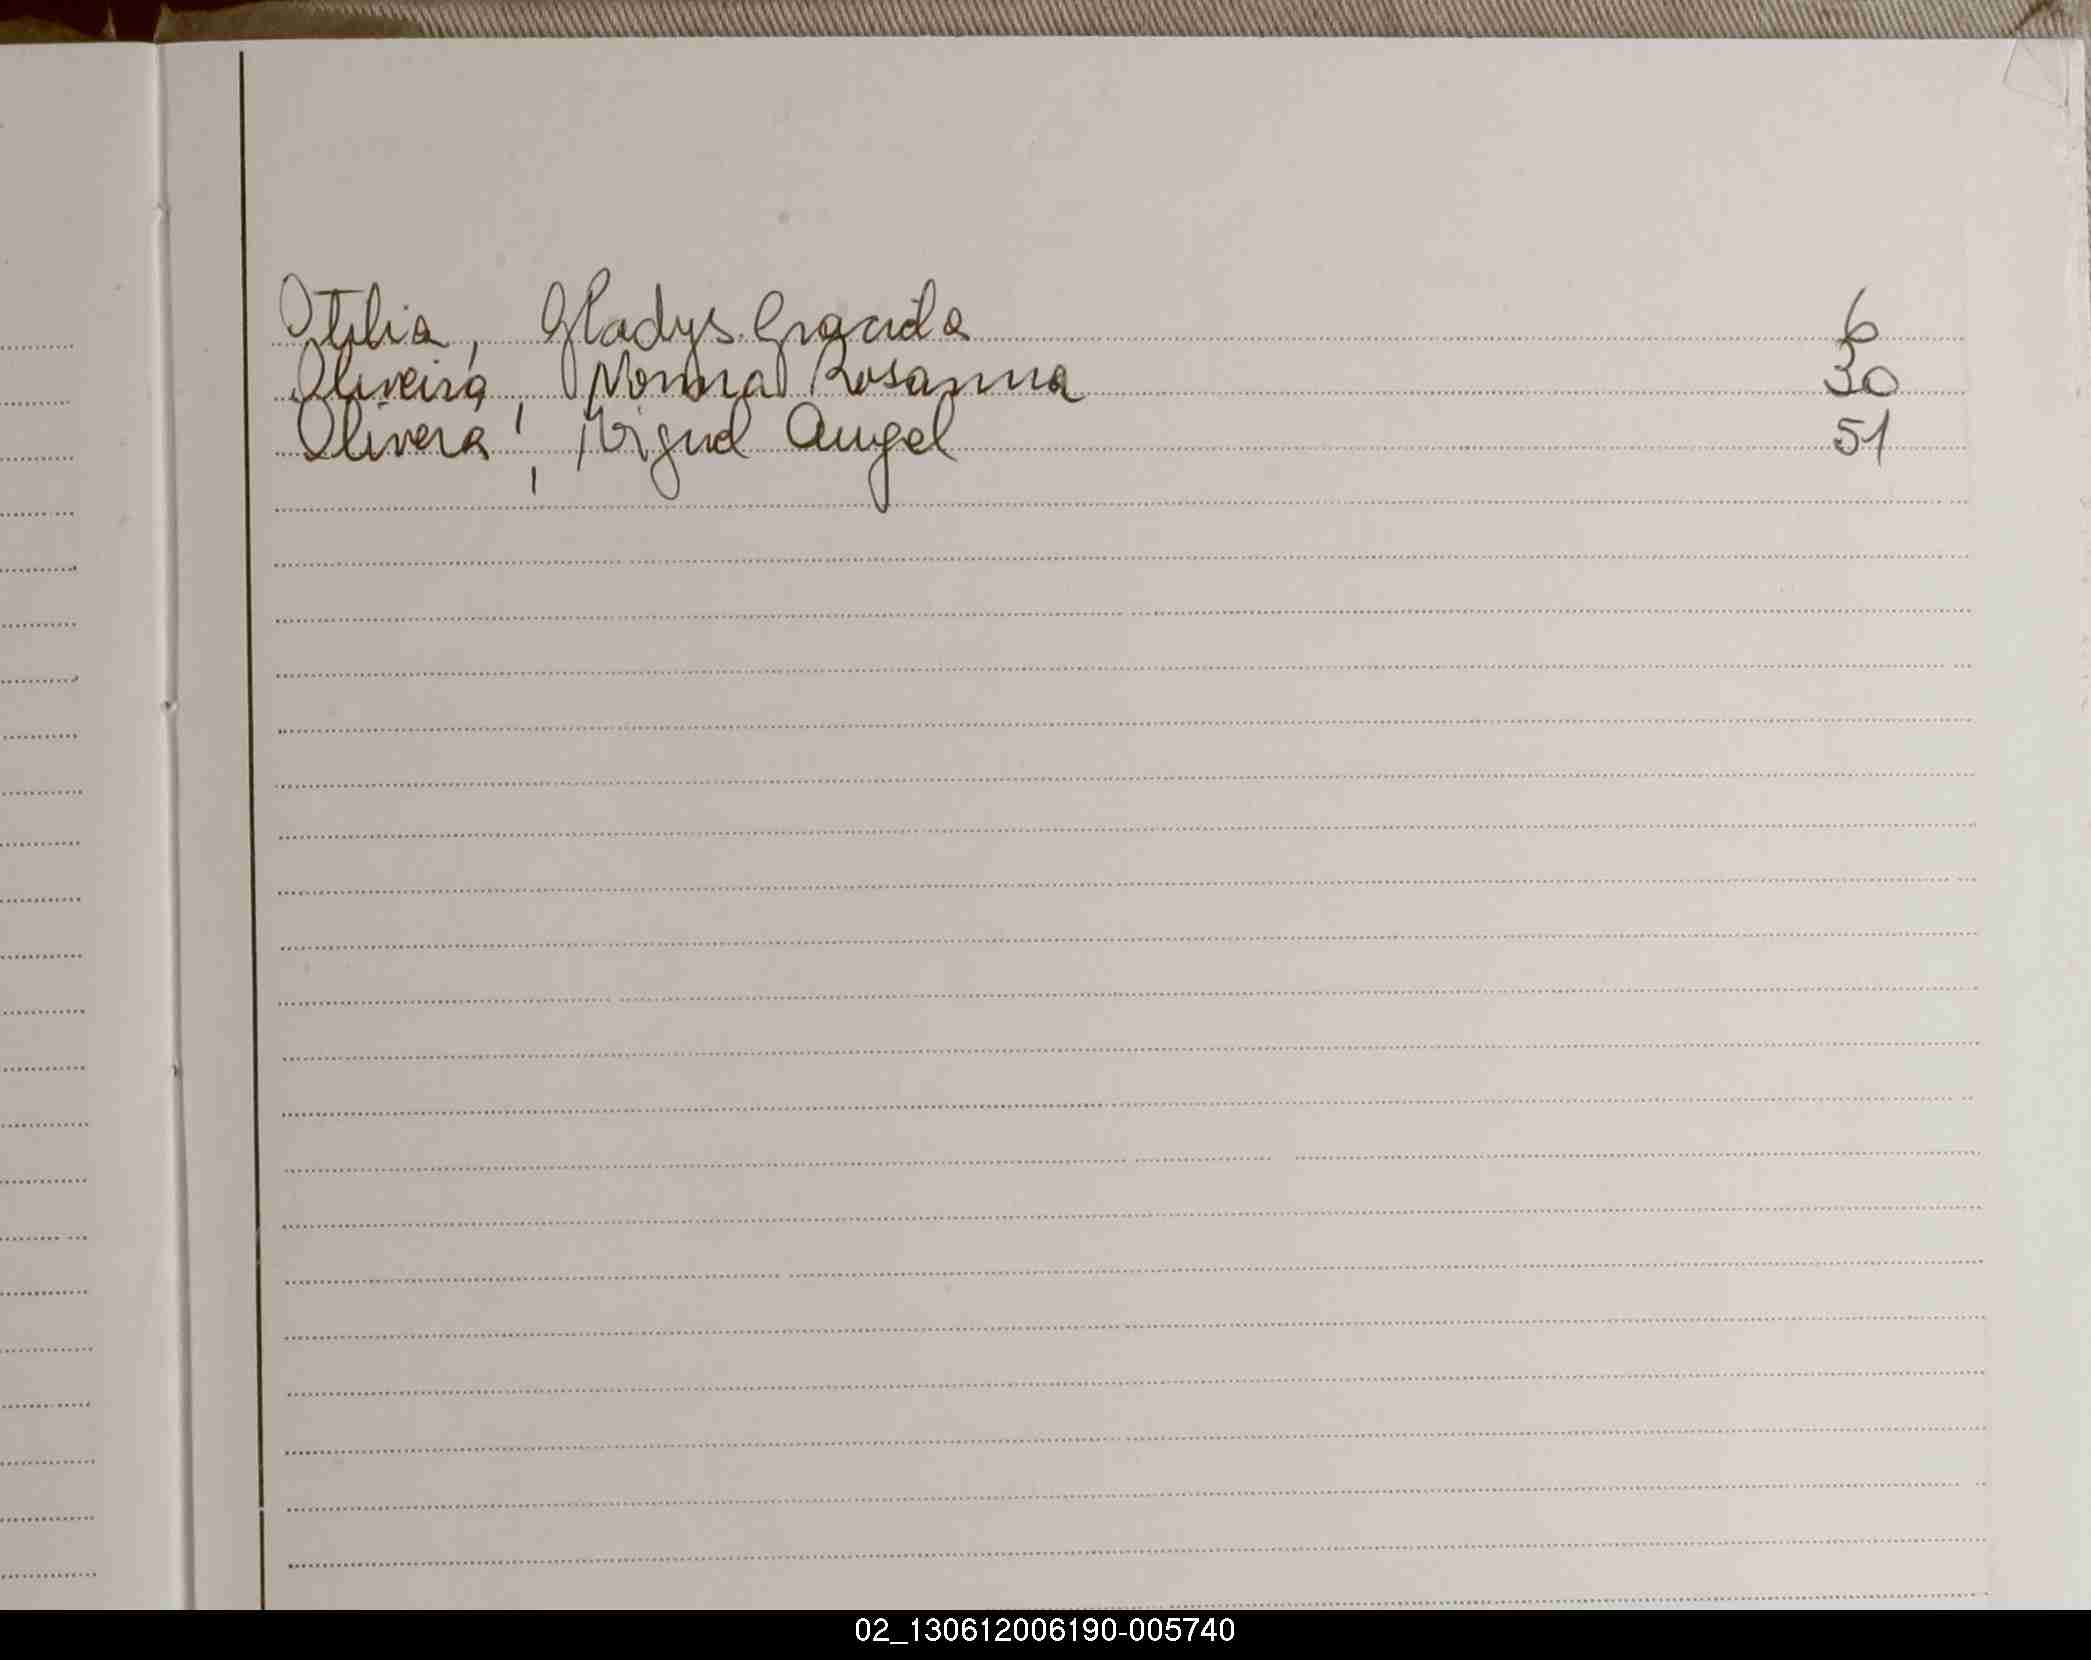 Otilia, Gladys Gracida 6
Oliveira, Norma Rosanna 30
Olivera, Miguel Angel 51
02_130612006190-005740